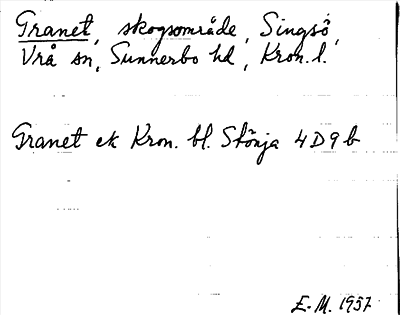 Granet, skogsområde, Singsö,
Vrå sn, Sunnerbo hd, Kron. l.
Granet ek Kron. bl. Skönja 4D9b
E-M. 1957